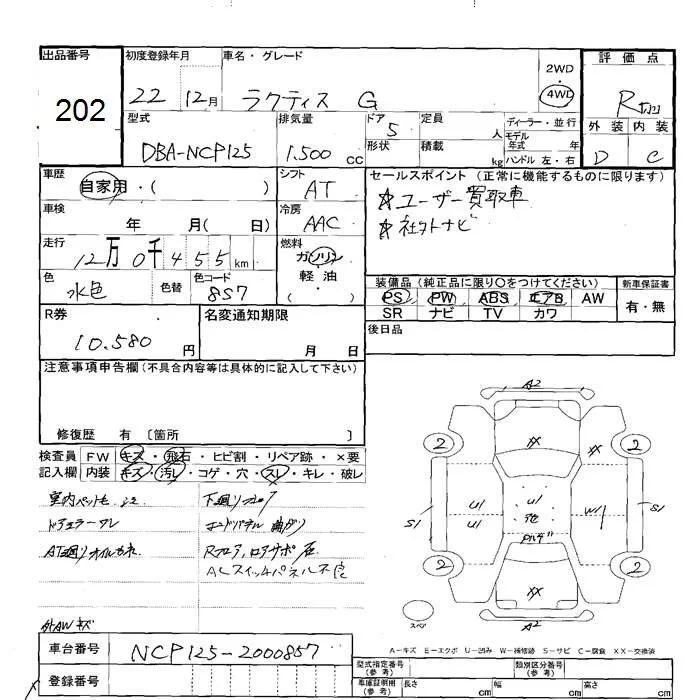 出品番号 202
初度登録年月 22 12月
車名・グレード ラクティス G
2WD
4WD
評価点 R
外装 内装
D C
型式 DBA-NCP125
排気量 1.500 cc
ドア 5
形状
定員 人
積載 kg
ディーラー・並行
モデル年式 年
ハンドル 左・右
車歴 自家用・( )
シフト AT
セールスポイント (正常に機能するものに限ります)
☆ユーザー買取車
☆社外ナビ
車検 年 月( 日)
冷房 AAC
走行 12万0千455km
燃料 ガソリン
軽油
( )
色 水色
色替
色コード 8S7
装備品 (純正品に限り○をつけてください)
新車保証書
PS PW ABS エアB AW
有・無
SR ナビ TV カワ
R券 10.580 円
名変通知期限 月 日
後日品
注意事項申告欄 (不具合内容等は具体的に記入して下さい)
修復歴 有 〔箇所 〕
検査員 FW キズ・飛石・ヒビ割・リペア跡・×要
記入欄 内装 キズ・汚レ・コゲ・穴・スレ・キレ・破レ
室内ペット毛
下廻り
エンドパネル曲がり
AT廻りオイル
Rフロア、ロアサポ
ACスイッチパネル不良
外AWキズ
A2
2 XX XX 2
S1 U1 U1 U1 W1 S1
2 XX 2
A2
スペア
A-キズ E-エクボ U-凹み W-補修跡 S-サビ C-腐食 XX-交換済
車台番号 NCP125-2000857
登録番号
型式指定番号 (参考)
類別区分番号 (参考)
車庫証明用 (参考) 長さ cm 幅 cm 高さ cm